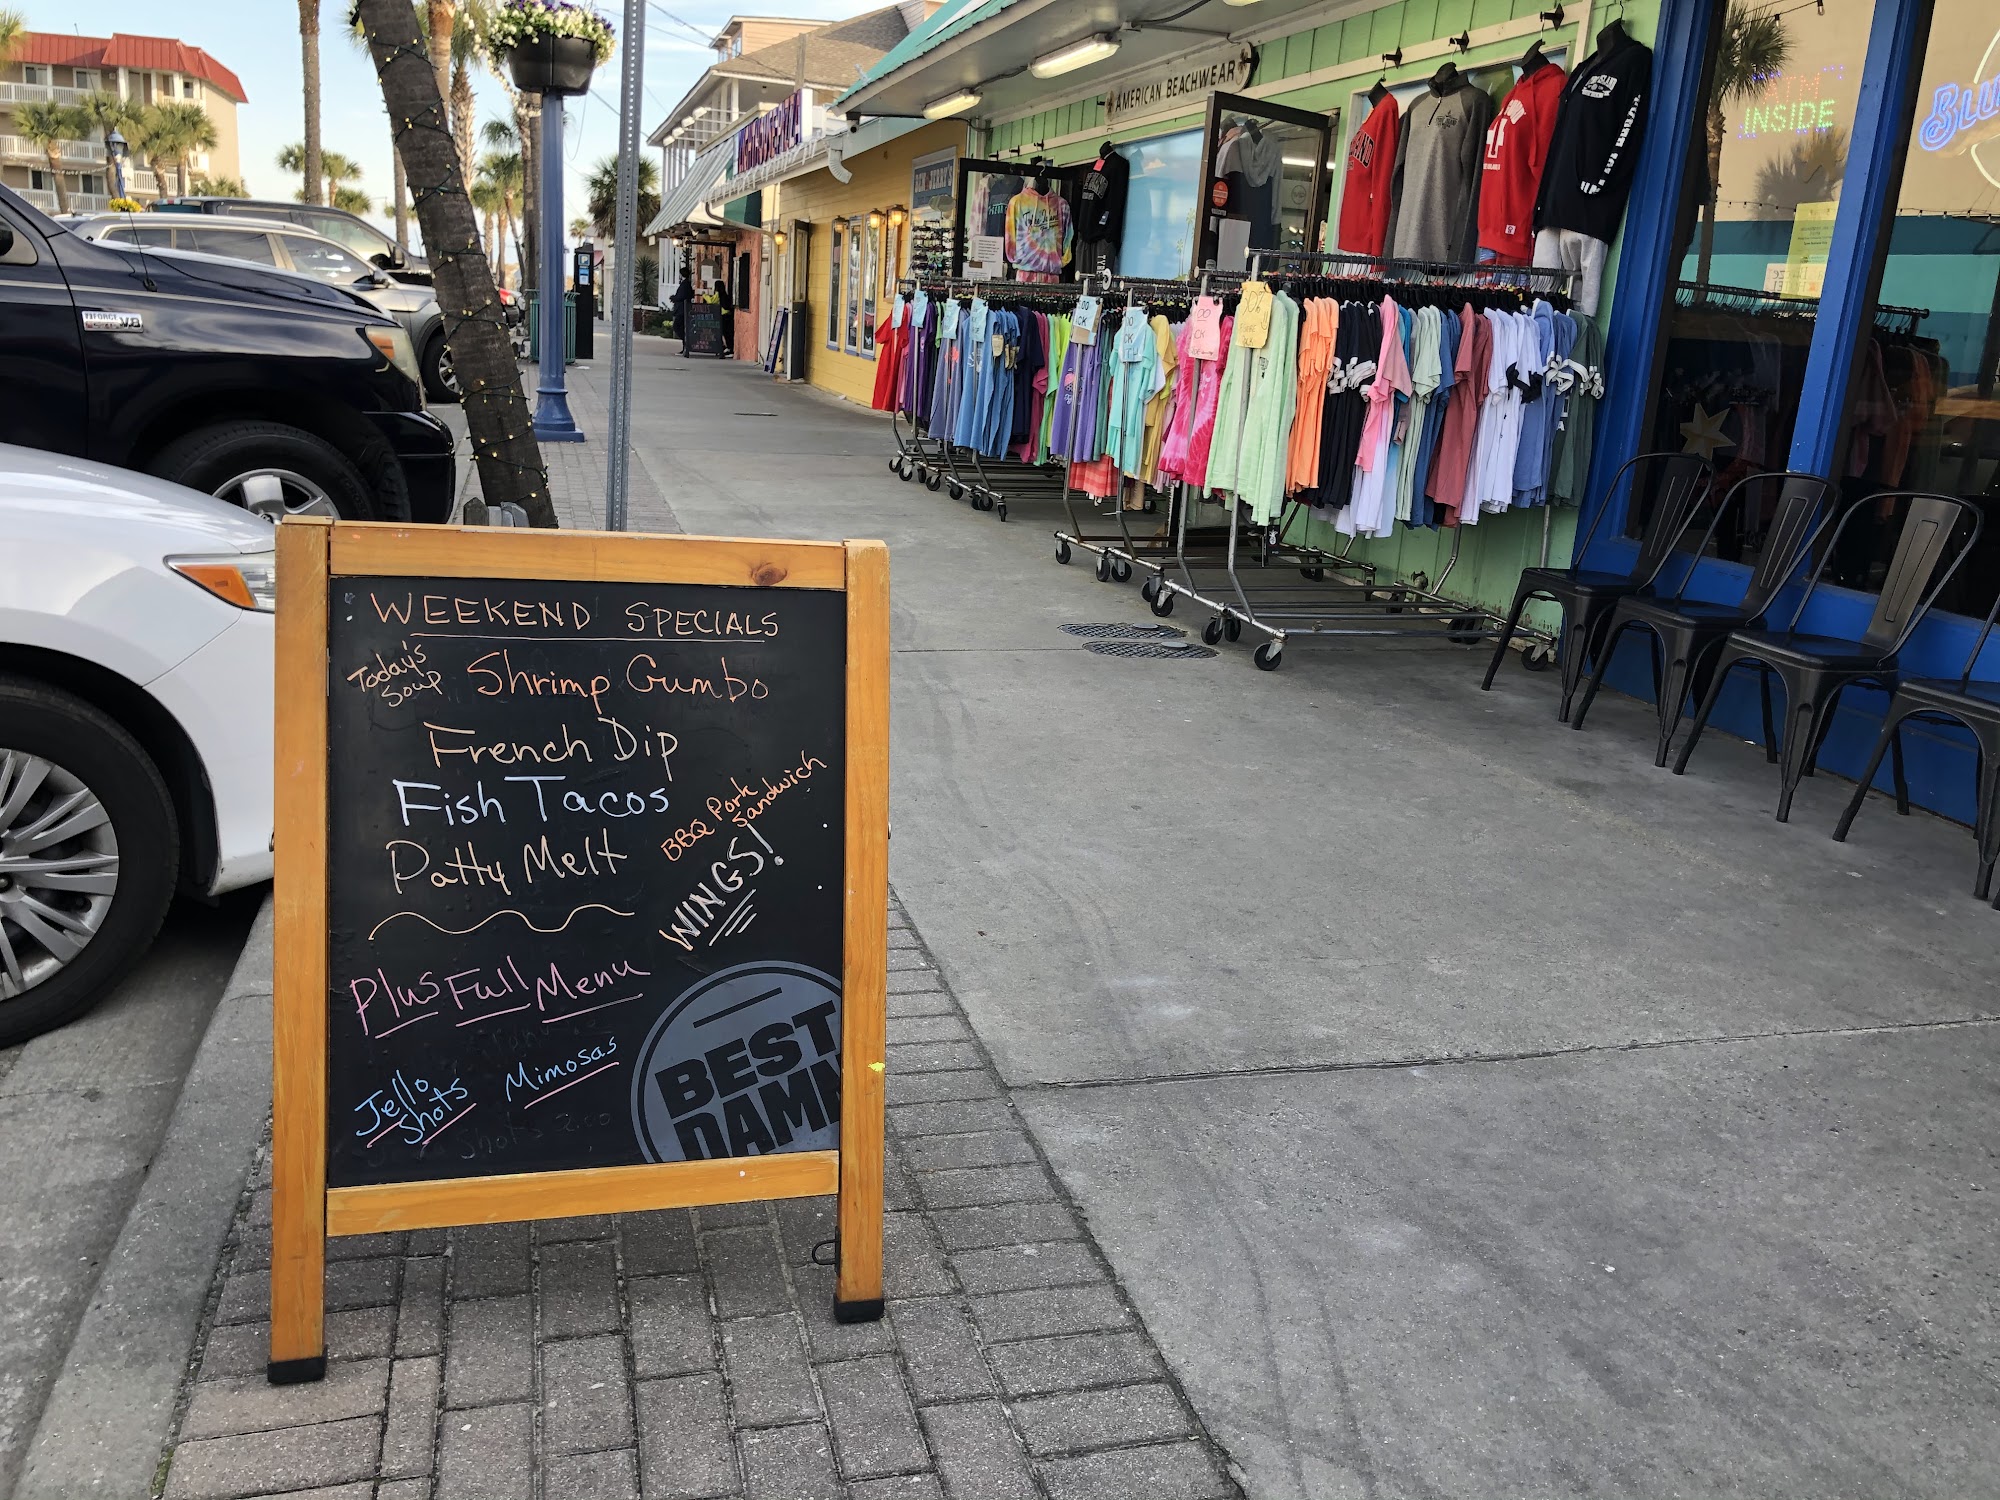 WEEKEND SPECIALS
Today's
Soup
Shrimp Gumbo
French Dip
Fish Tacos
Patty Melt
BBQ Pork
Sandwich
WINGS!
Plus Full Menu
Jello
Shots
Mimosas
Shots 2.00
BEST
DAMN
AMERICAN BEACHWEAR
BEN & JERRY'S
ATM
INSIDE
BLU